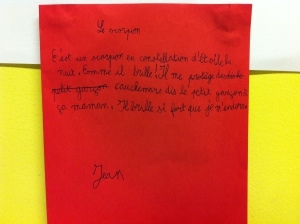 Le scorpion
C'est un scorpion en constellation d'étoile la
nuit. Comme il brille! Il me protège des
petit garçon cauchemars dis le petit garçon à
sa maman. Il brille si fort que je m'endors
Jean